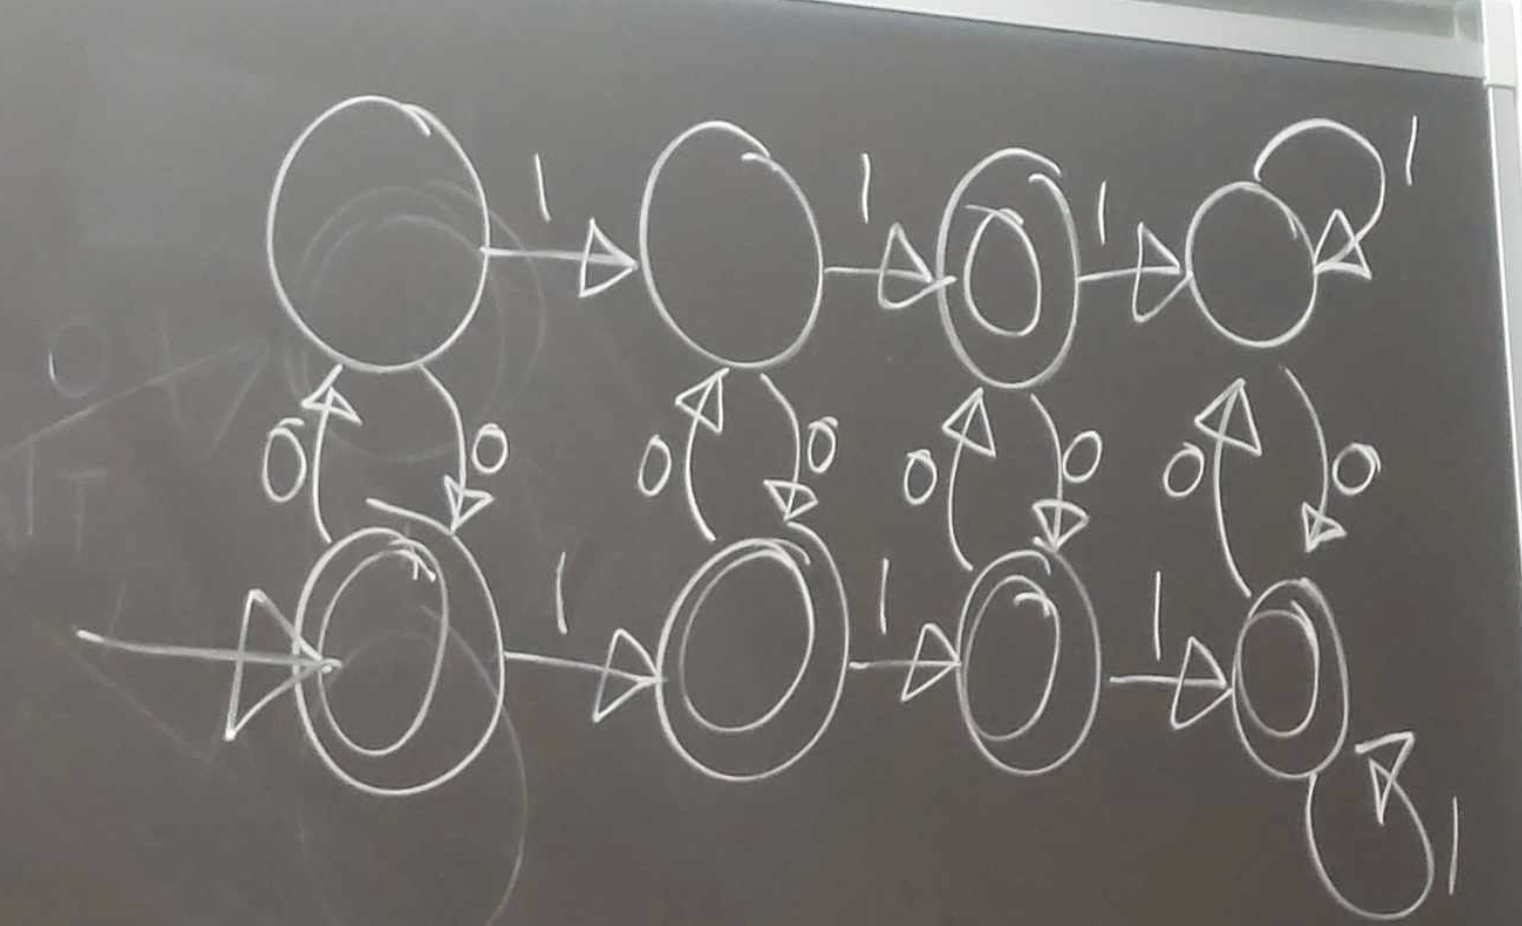 1 1 1 1
0 0 0 0 0 0 0 0
1 1 1
1